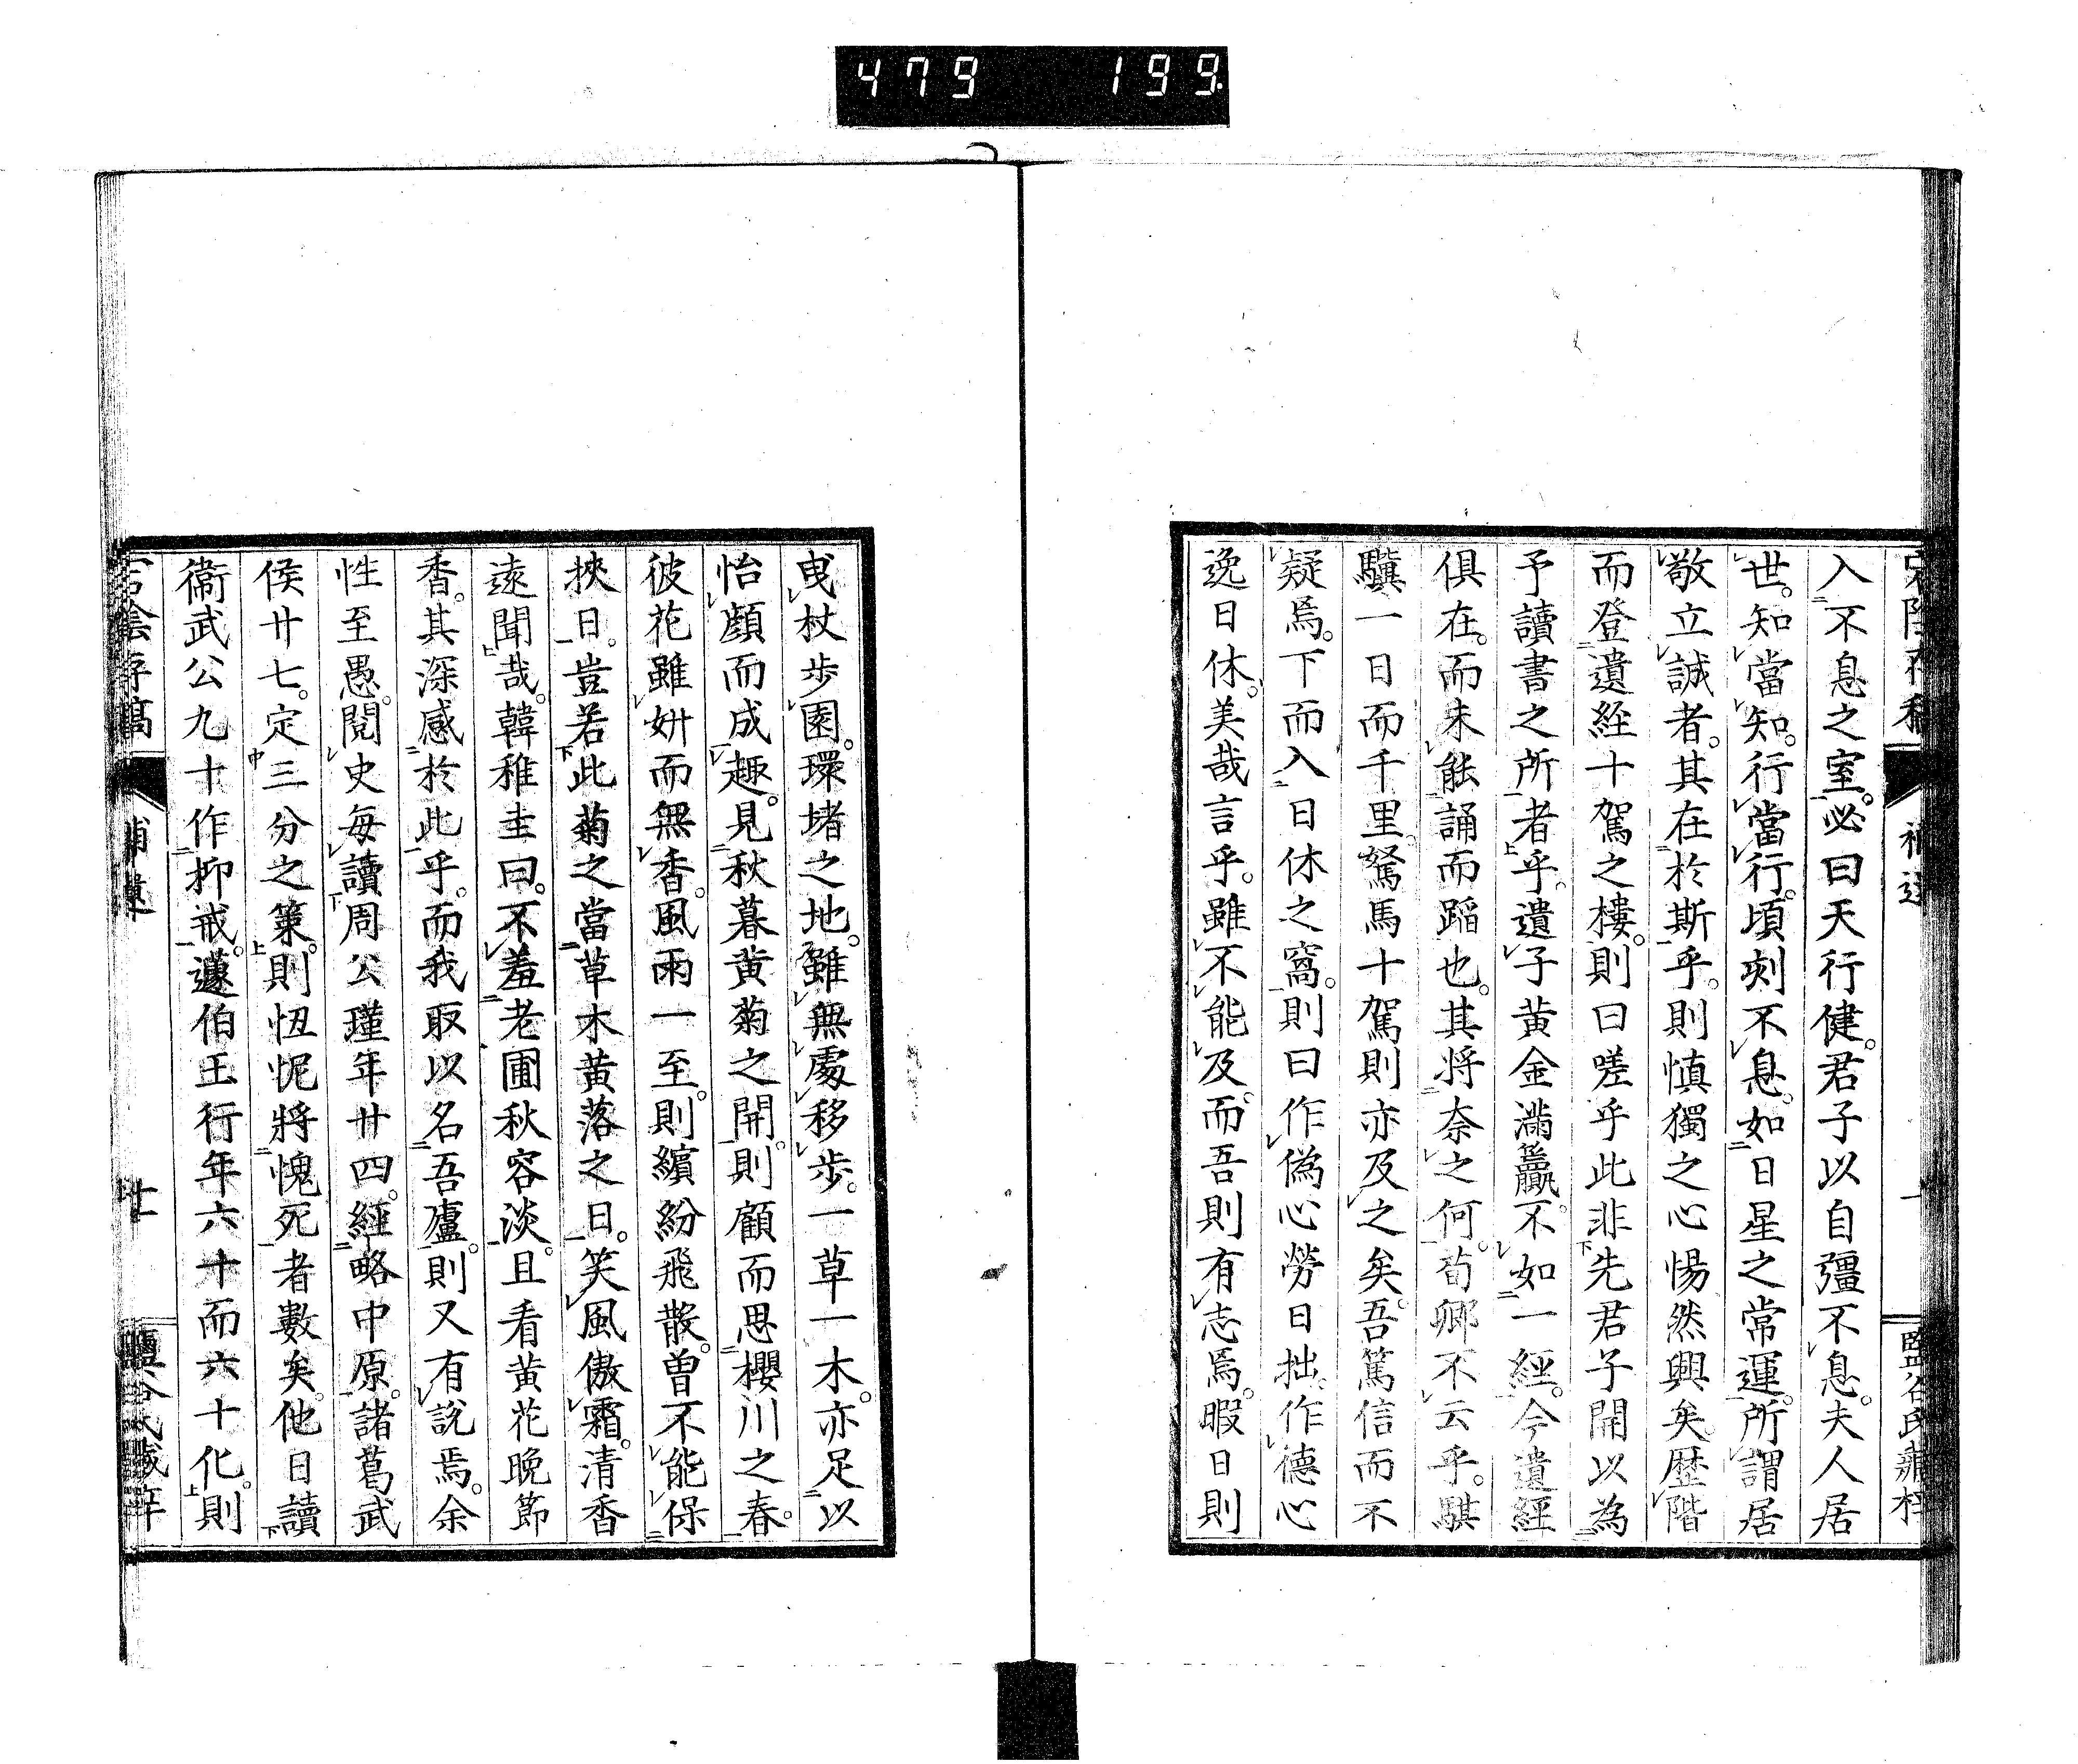 479 199
入不息之室。必曰天行健。君子以自彊不息。夫人居
世。知當知。行當行。頃刻不息。如日星之常運。所謂居
敬立誠者。其在於斯乎。則慎獨之心惕然興矣。歷階
而登遺經十駕之樓。則曰嗟乎此非先君子開以為
予讀書之所者乎。遺子黄金滿籯。不如一經。今遺經
俱在。而未能誦而蹈也。其將奈之何。荀卿不云乎。騏
驥一日而千里。駑馬十駕則亦及之矣。吾篤信而不
疑焉。下而入日休之窩。則曰作偽心勞日拙。作德心
逸日休。美哉言乎。雖不能及。而吾則有志焉。暇日則
曳杖步園。環堵之地。雖無處移步。一草一木。亦足以
怡顔而成趣。見秋暮黄菊之開。則顧而思櫻川之春。
彼花雖妍而無香。風雨一至。則繽紛飛散。曽不能保
挾日。豈若此菊之當草木黄落之日。笑風傲霜。清香
遠聞哉。韓稚圭曰。不羞老圃秋容淡。且看黄花晩節
香。其深感於此乎。而我取以名吾廬。則又有説焉。余
性至愚。閲史毎讀周公瑾年廿四。經略中原。諸葛武
侯廿七。定三分之策。則忸怩將愧死者數矣。他日讀
衞武公九十作抑戒。蘧伯玉行年六十而六十化。則
宕陰存稿
補遺
十
鹽谷氏藏梓